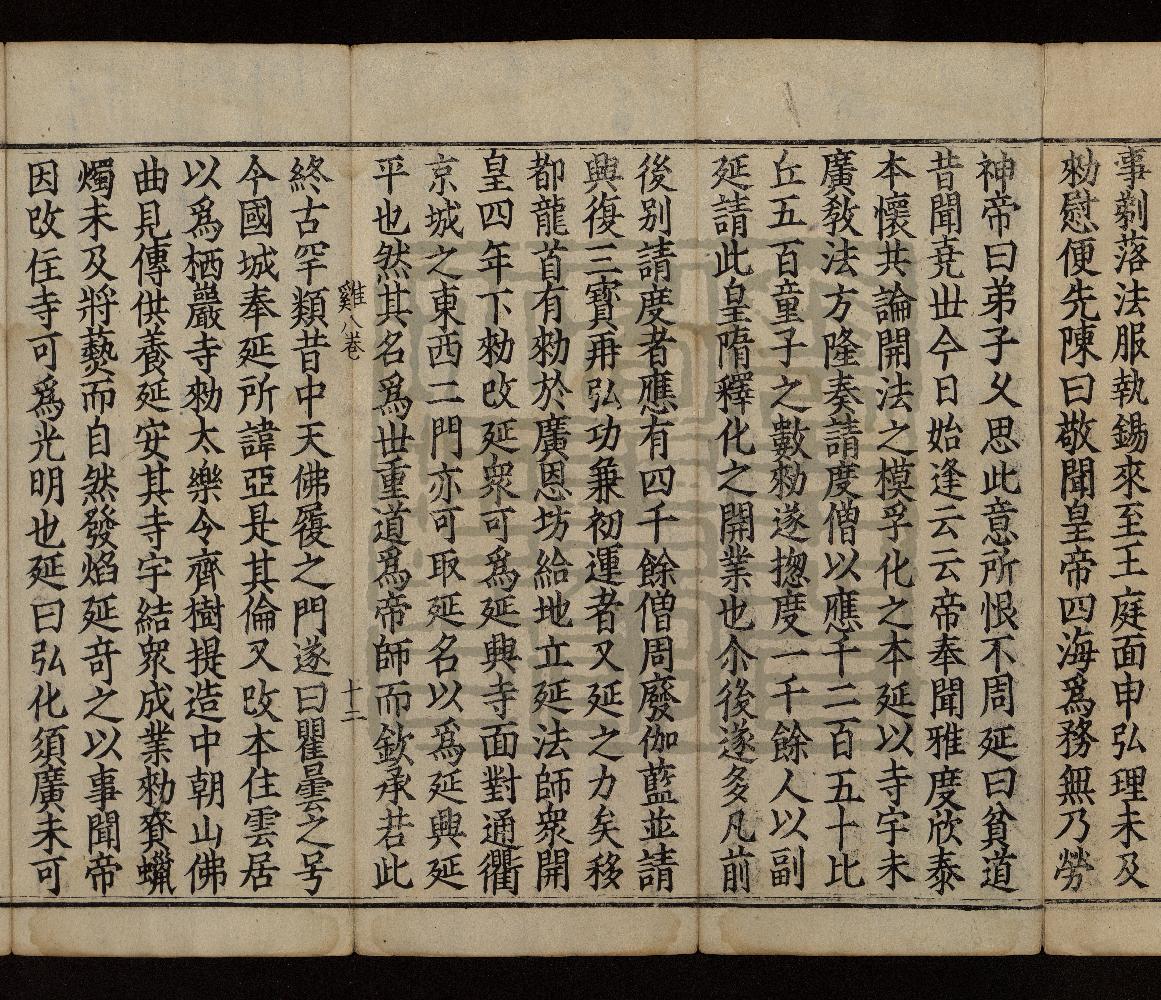 事剃落法服執錫來至王庭面申弘理未及
勑慰便先陳曰敬聞皇帝四海爲務無乃勞
神帝曰弟子乆思此意所恨不周延曰貧道
昔聞堯世今日始逢云云帝奉聞雅度欣泰
本懷共論開法之模孚化之本延以寺宇未
廣敎法方隆奏請度僧以應千二百五十比
丘五百童子之數勑遂揔度一千餘人以副
延請此皇隋釋化之開業也尒後遂多凡前
後別請度者應有四千餘僧周廢伽藍並請
興復三寶再弘功兼初運者又延之力矣移
都龍首有勑於廣恩坊給地立延法師衆開
皇四年下勑改延衆可爲延興寺面對通衢
京城之東西二門亦可取延名以爲延興延
平也然其名爲世重道爲帝師而欽承若此
雞八卷 十二
終古罕類昔中天佛履之門遂曰瞿曇之号
今國城奉延所諱亞是其倫又改本住雲居
以爲栖巖寺勑太樂令齊樹提造中朝山佛
曲見傳供養延安其寺宇結衆成業勑賚蠟
燭未及將爇而自然發焰延奇之以事聞帝
因改住寺可爲光明也延曰弘化須廣未可